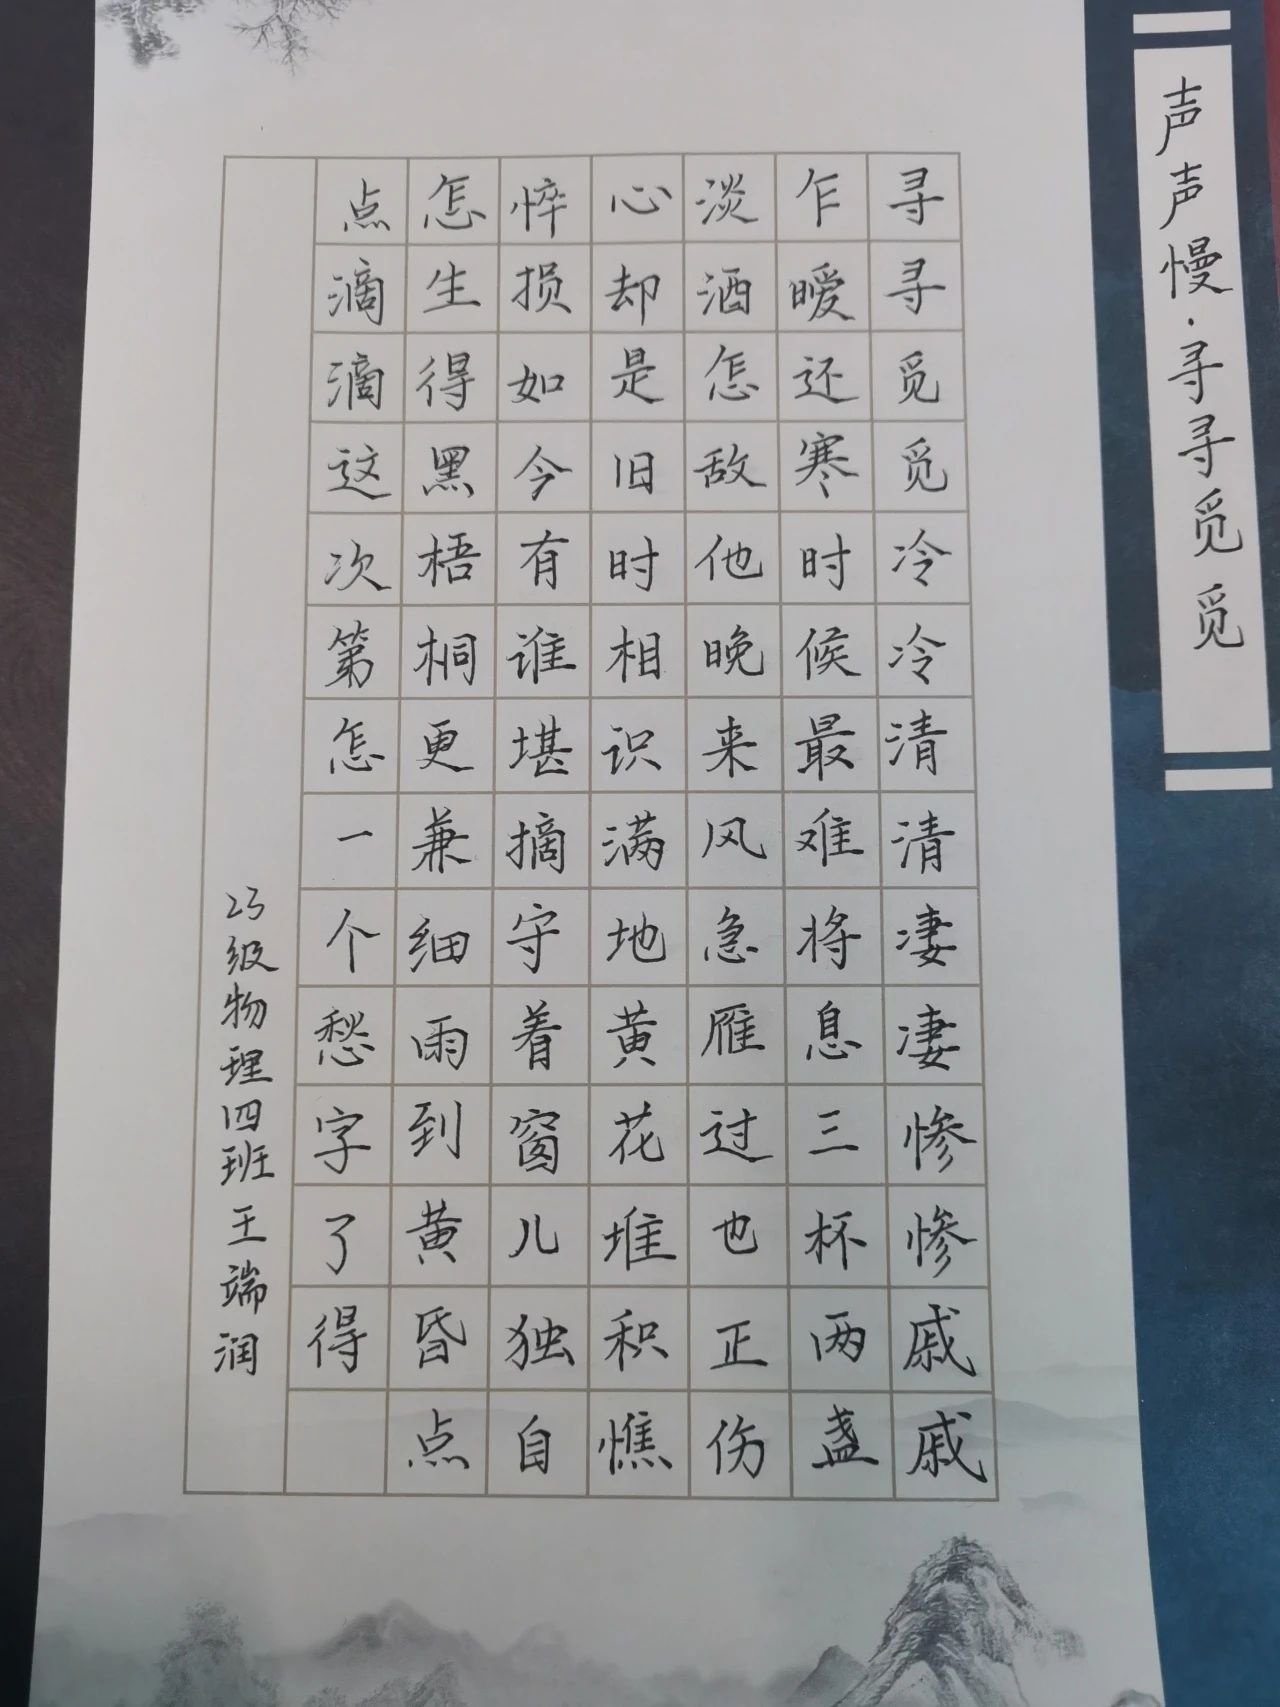 声声慢·寻寻觅觅
寻寻觅觅冷冷清清凄凄惨惨戚戚
乍暧还寒时候最难将息三杯两盏
淡酒怎敌他晚来风急雁过也正伤
心却是旧时相识满地黄花堆积憔
悴损如今有谁堪摘守着窗儿独自
怎生得黑梧桐更兼细雨到黄昏点
点滴滴这次第怎一个愁字了得
23级物理四班王端润